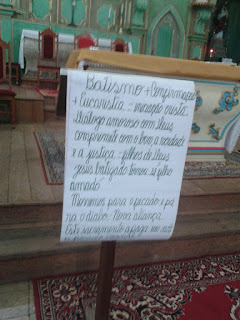 Batismo + Confirmação
+ Eucaristia = iniciação cristã
Diálogo amoroso com Deus
compromisso com o bem, a verdade
e a justiça = filhos de Deus
Jesus batizado torna-se filho
amado
Morremos para o pecado e p/a
o diabo. Nova aliança.
Este sacramento apaga em nós